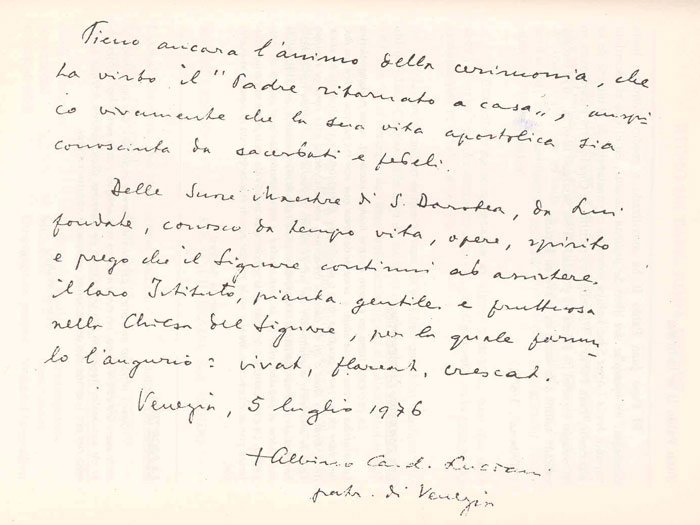 Pieno ancora l'animo della cerimonia, che
ha visto il "Padre ritornato a casa", auspi-
co vivamente che la sua vita apostolica sia
conosciuta da sacerdoti e fedeli.
Delle Suore Maestre di S. Dorotea, da Lui
fondate, conosco da tempo vita, opere, spirito
e prego che il Signore continui ad assistere
il loro Istituto, pianta gentile e fruttuosa
nella Chiesa del Signore, per la quale formu-
lo l'augurio: vivat, floreat, crescat.
Venezia, 5 luglio 1976
+ Albino Card. Luciani
patr. di Venezia